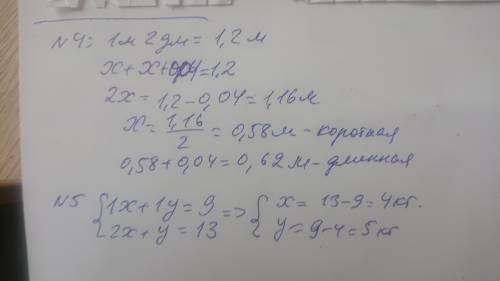 N4: 1м 2дм = 1,2 м
x+x+0,04=1,2
2x = 1,2-0,04=1,16м
x = 1,16/2 = 0,58м - короткая
0,58+0,04=0,62м-длинная
N5 {1x+1y=9 => {x = 13-9=4кг.
2x+y=13 y=9-4=5кг